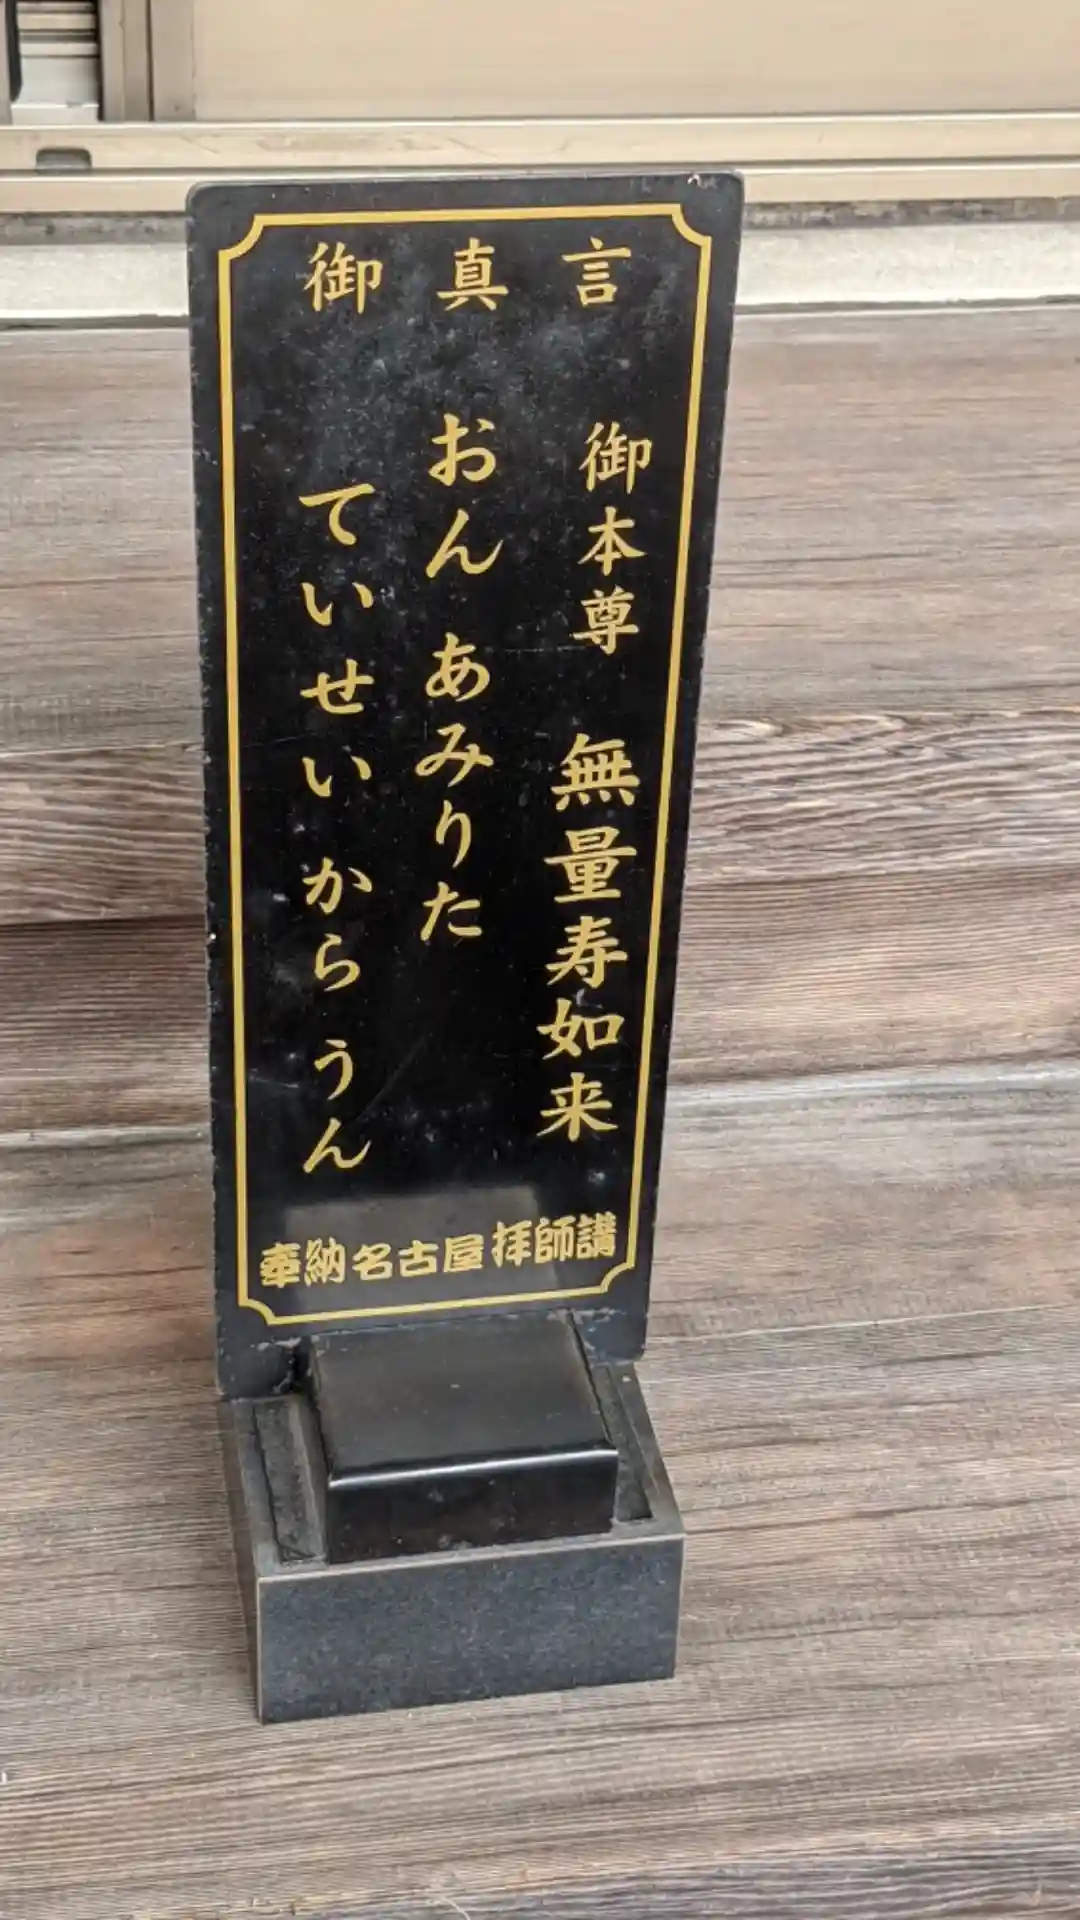 御真言
御本尊 無量寿如来
おん あみりた
ていせい から うん
奉納 名古屋 拝師講